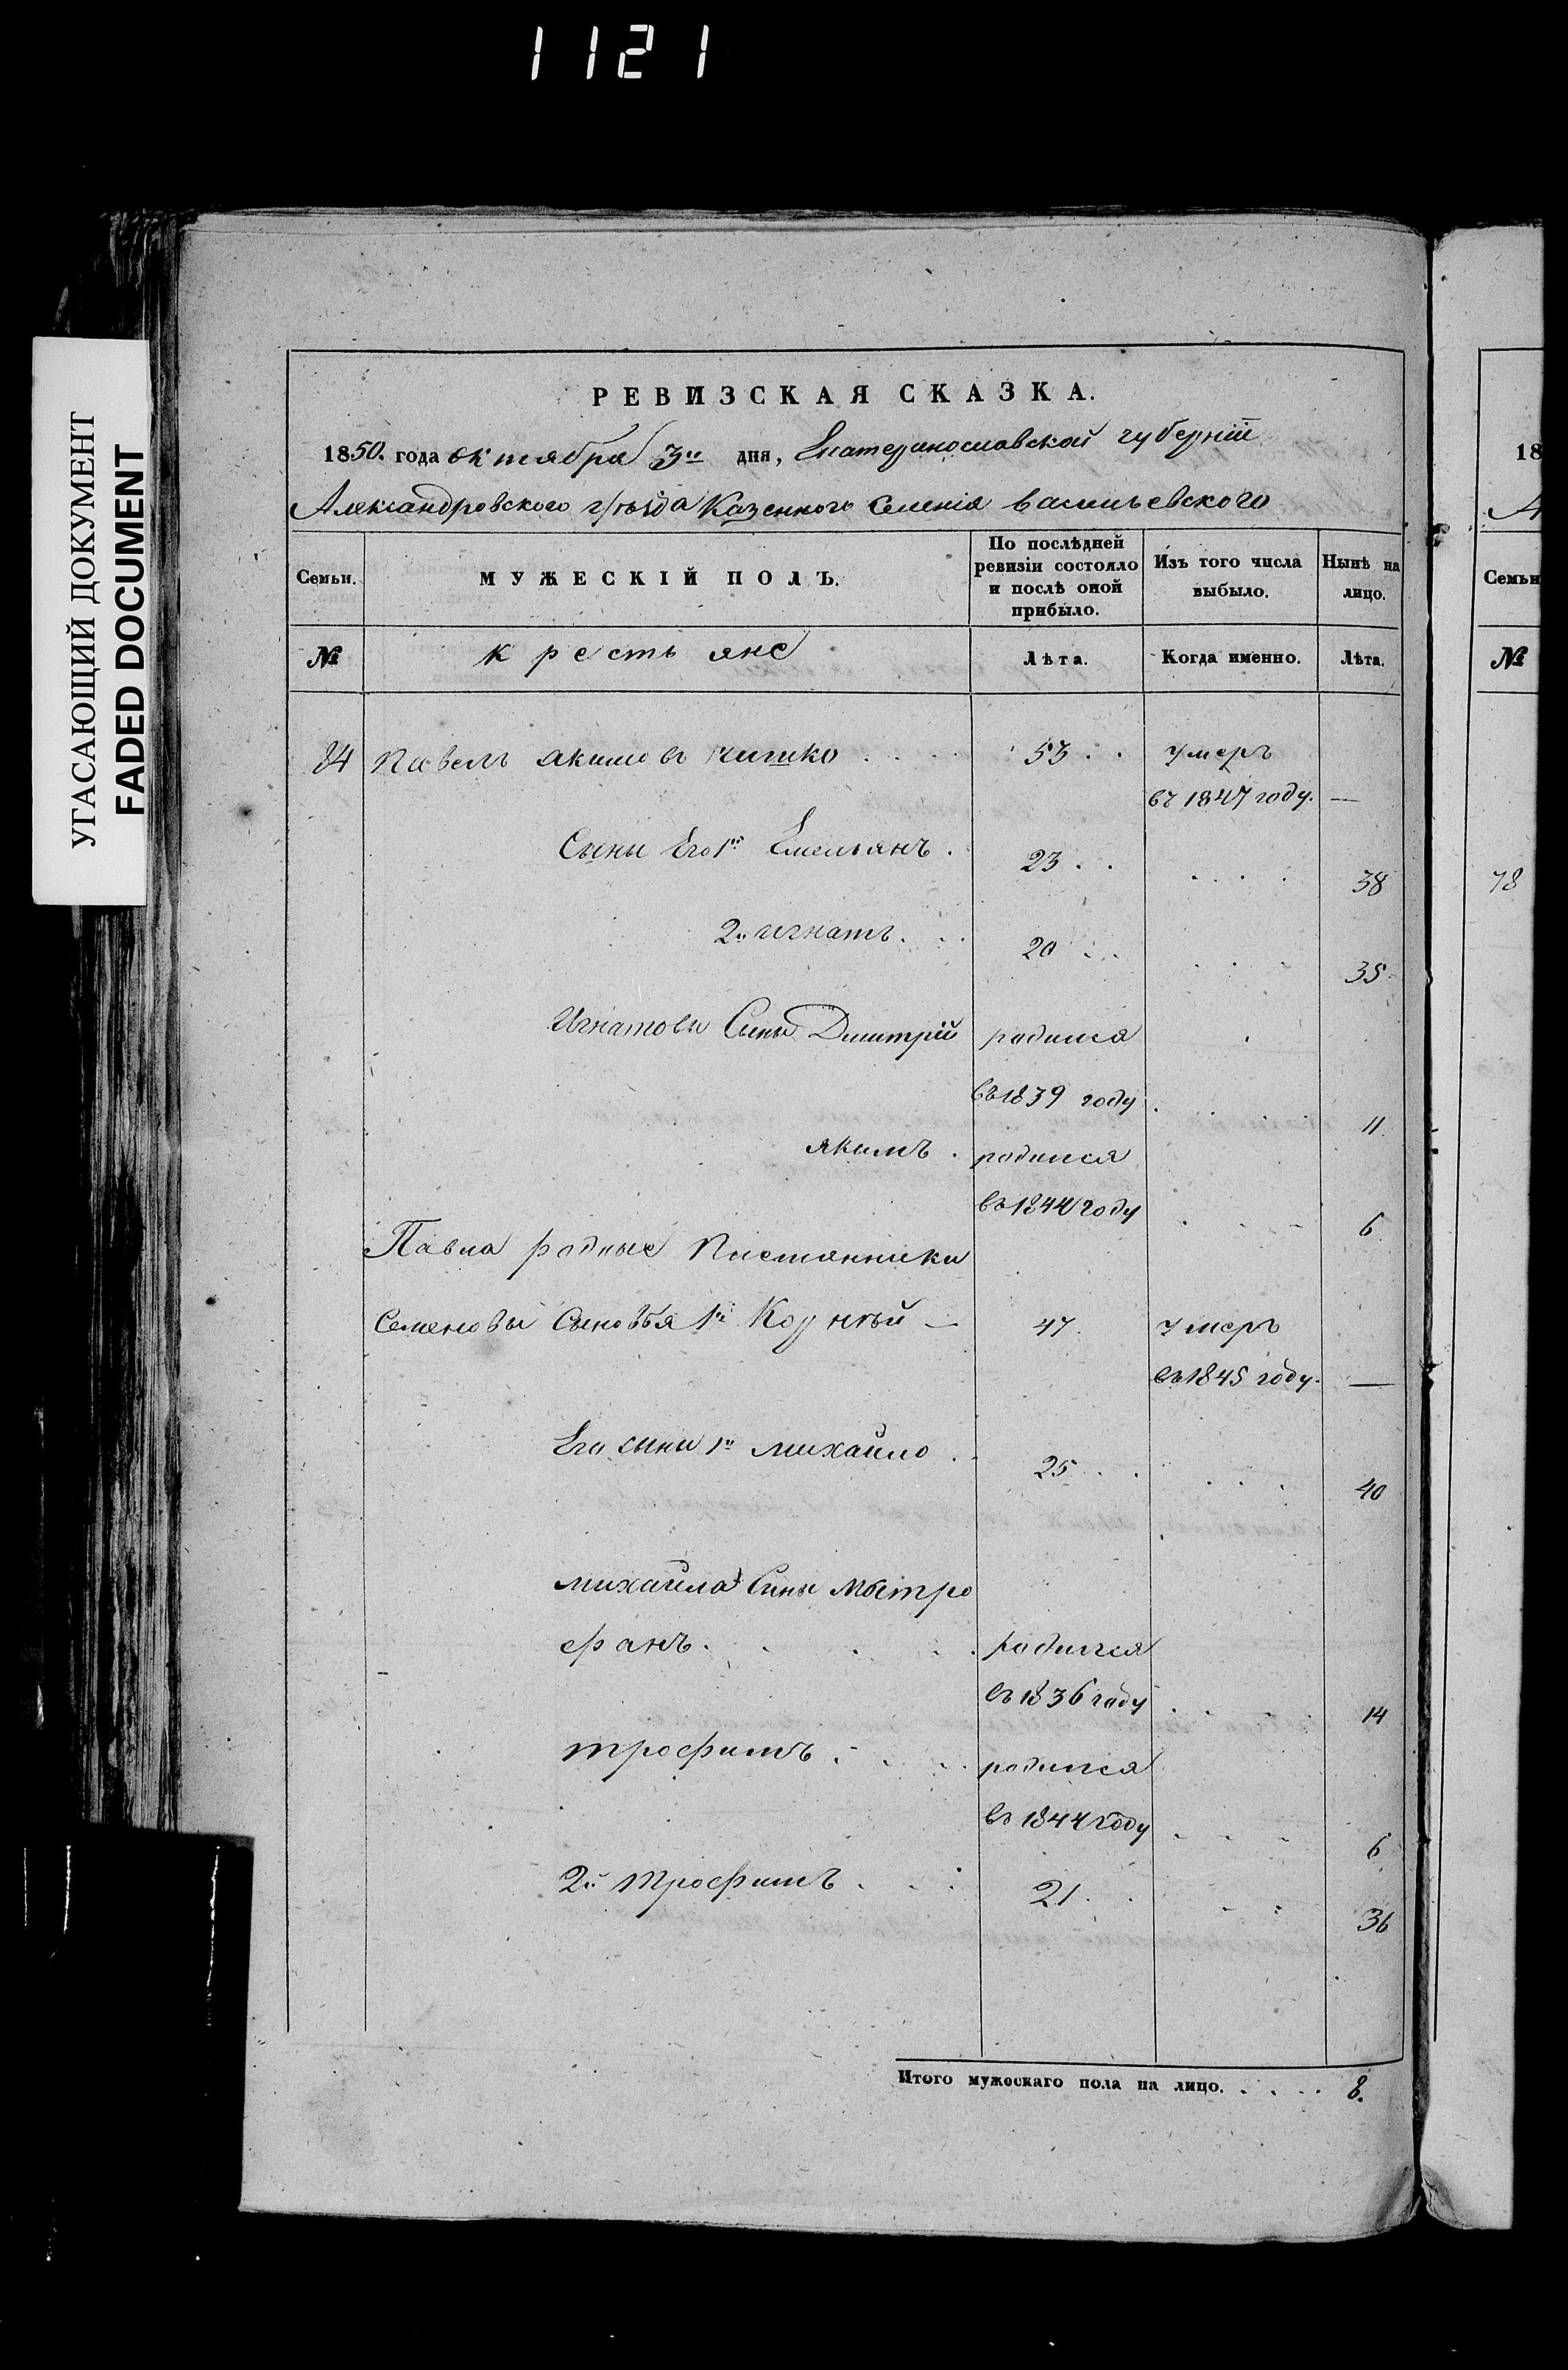 1121
УГАСАЮЩИЙ ДОКУМЕНТ
FADED DOCUMENT
РЕВИЗСКАЯ СКАЗКА.
1850. года октября 3го дня, Екатеринославской губернiи
Александровского уѣзда Казенного Селенiя васильевского
Семьи. МУЖЕСКІЙ ПОЛЪ. По послѣдней ревизіи состояло и послѣ оной прибыло. Изъ того числа выбыло. Нынѣ на лицо.
№ крестьяне Лѣта. Когда именно. Лѣта.
84 Павелъ акимовъ 53 умеръ
въ 1847 году. —
Сыны Его 1й Емельянъ 23 38
2й игнатъ 20 35
Игнатовы Сыны Дмитрій родился
въ 1839 году 11
якимъ родился
въ 1844 году 6
Павла родные племянники
Семеновы Сыновья 1й Корнѣй — 47 умеръ
въ 1845 году. —
Его сыны 1й михайло 25 40
михайла Сыны Митро
фанъ родился
въ 1836 году 14
трофимъ родился
въ 1844 году 6
2й трофимъ 21 36
Итого мужескаго пола на лицо. 8.
18
А
Семьи
№
78